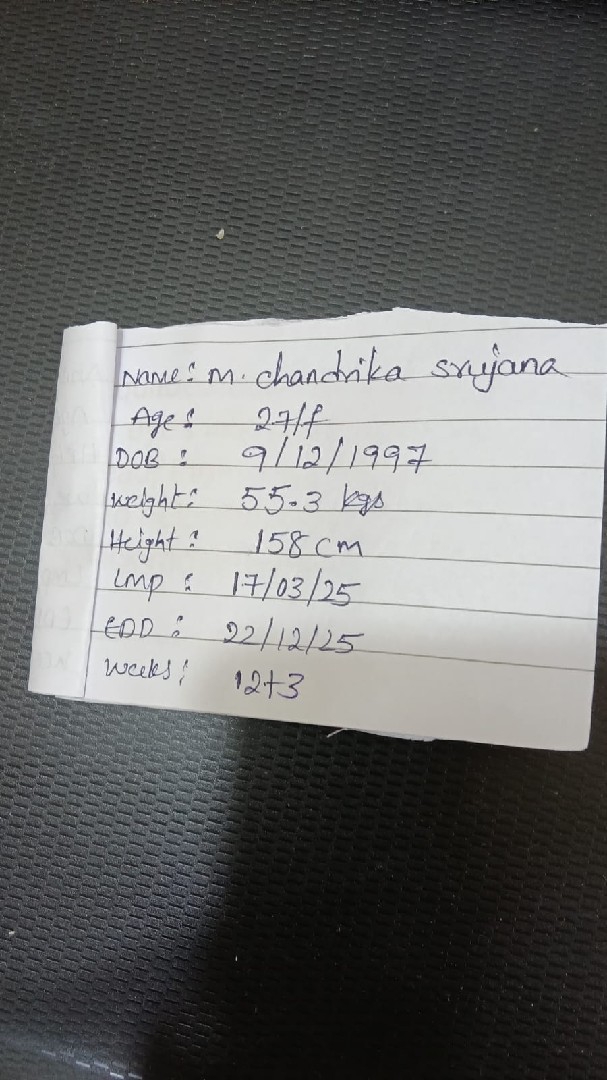 Name: M. chandrika srujana
Age: 27/f
DOB: 9/12/1997
weight: 55.3 kgs
Height: 158 cm
LMP: 17/03/25
EDD: 22/12/25
Weeks: 12+3